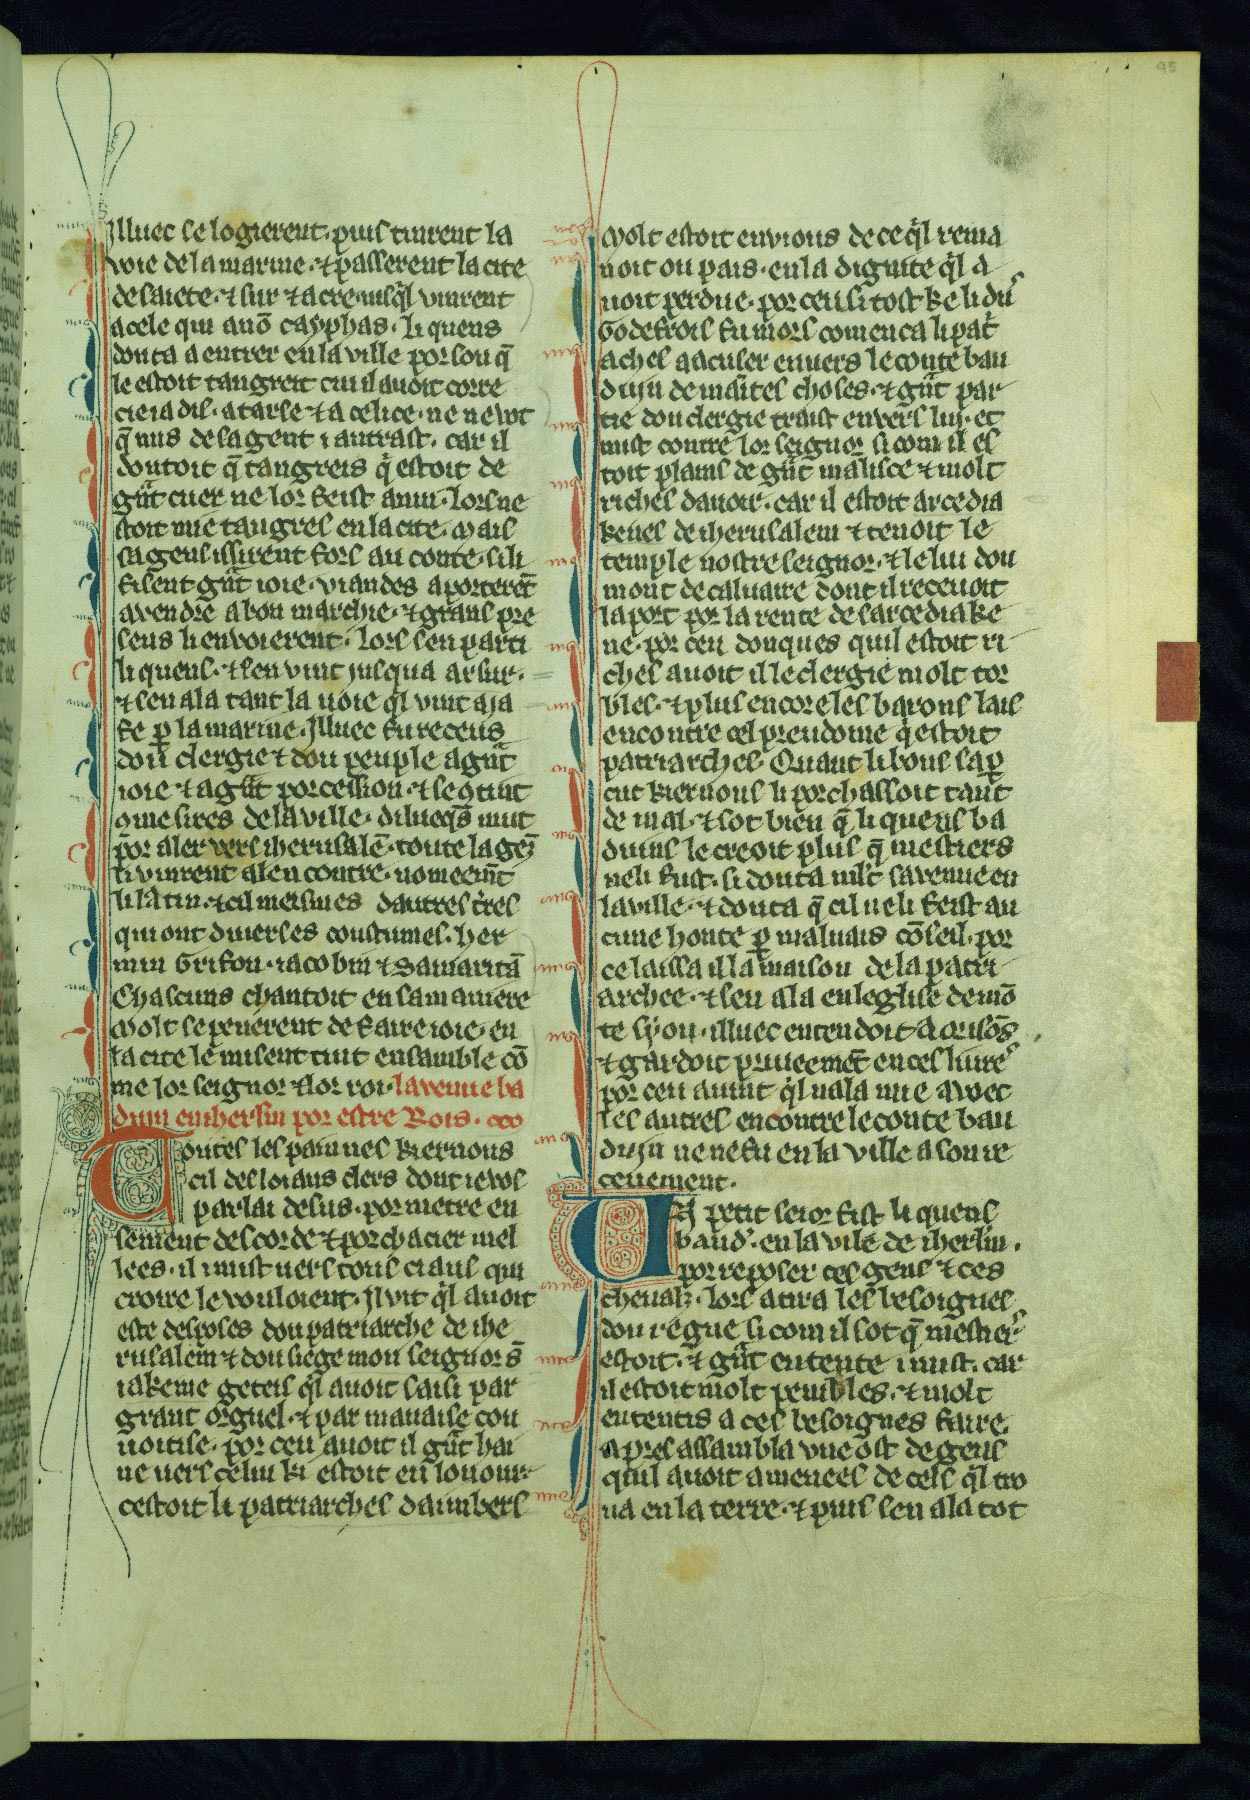 95
Illuec se logierent· puis tinrent la
voie de la marine·⁊ passerent la cite
de saiete·⁊ sur ⁊ acre·iusq̃l vinrent
a cele qui a nõ cayphas· li quens
douta a entrer en la ville por sou q̃
le estoit tangreit cui il auoit corre
cie iadis· a tarse ⁊ a celice· ne ne volt
q̃ nus de sa gent i antrast· car il
doutoit q̃ tangreis q̃ estoit de
gñt cuer ne lor feist anui· lors ne
stoit mie tangres en la cite· Mais
sa gens issirent fors au conte· si li
fisent gñt ioie· viandes aporterẽt
avendre a bon marchie·⁊ grans pre
sens li envoierent· lors sen parti
li quens·⁊ sen vint jusqua arsur·
⁊ sen ala tant la uoie q̃l vint a ja
fe p̱ la marine· Illuec fu receus
dou clergie ⁊ dou peuple a gñt
ioie ⁊ a gñt porcession·⁊ le otint
ome sires de la ville· diluecq̃s mut
por aler vers iherusalẽ· toute la gẽt
li vinrent alen contre· nomeemẽt
li latin·⁊ cil meismes dautres tr̃es
qui ont diuerses coustumes· her
min Grifon· iacobin ⁊ Samaritã
Chascuns chantoit en sa maniere
Molt se penerent de faire ioie· en
la cite le misent tuit ensamble cõ
me lor seignor ⁊ lor roi· la venue ba
duin en iherslm por estre Rois· cco
Toutes les painnes kiernous
cil desloiaus clers dont ie vos
parlai desus· por metre en
sement descorde ⁊ porchacier mel
lees· il i mist uers tous ciaus qui
croire le vouloient· Il vit q̃l auoit
este desposes dou patriarche de ihe
rusalem ⁊ dou siege mon seignor s̃
iakeme geteis q̃l auoit saisi par
grant orguel·⁊ par mauaise cou
uoitise· por ceu auoit il gñt hai
ne uers celui ki estoit en souour
cestoit li patriarches daimbers
Molt estoit envious de ce q̃l rema
noit ou pais· en la dignite q̃l a
uoit perdue· por ceu si tost ke li du᷒
Godefrois fu mors comenca li pat᷑
arches a acuser envers le conte bau
duyn de maĩtes choses·⁊ gñt par
tie dou clergie traist envers lui· et
mist contre lor seignor si com il es
toit plains de gñt malisce ⁊ molt
riches dauoir· car il estoit arcedia
kenes de iherusalem ⁊ tenoit le
temple nostre seignor·⁊ le lui dou
mont de caluaire dont il receuoit
la port por la rente de sarcediake
ne· por ceu donques quil estoit ri
ches auoit il le clergie molt tor
bles·⁊ plus encore les barons lais
encontre cel preudome q̃ estoit
patriarches· Quant li bons sap̱
cut kiernous li porchassoit tant
de mal·⁊ sot bien q̃ li quens ba
duins le creoit plus q̃ mestiers
ne li fust· si douta ml̃t sa venue en
la ville·⁊ douta q̃ cil ne li feist au
cune honte p̱ maluais cõseil· por
ce laissa il la maison de la patri
archee·⁊ sen ala en leglise de mõ
te syon· illuec entendoit a orisõs
⁊ gardoit priueemẽt en ces liure᷒
por ceu auint q̃l nala mie avec
les autres encontre le conte bau
duyn ne ne fu en la ville a son re
ceuement·
Un petit seior fist li quens
baud᷒· en la vile de iherlm·
por reposer ces gens ⁊ ces
chenalz· lors atira les besoignes
dou regne si com il sot q̃ mestier᷒
estoit·⁊ gñt entente i mist· car
il estoit molt penibles·⁊ molt
ententis a ces besoignes faire·
apres assambla vne ost de gens
quil auoit amenees de cels q̃l tro
ua en la terre·⁊ puis sen ala tot